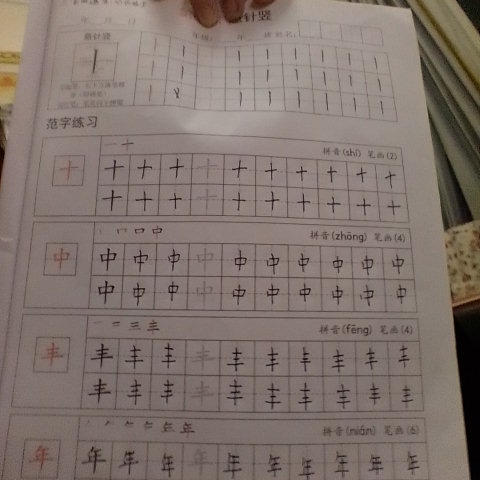 悬针竖
年 月 日
年级: 年 班 姓名:
悬针竖
范字练习
一 十
拼音(shí) 笔画(2)
十 十 十 十 十 十 十 十 十 十
十 十 十 十 十 十 十 十 十 十
十
丨 冂 口 中
拼音(zhōng) 笔画(4)
中 中 中 中 中 中 中 中 中 中
中 中 中 中 中 中 中 中 中 中
中
一 二 三 丰
拼音(fēng) 笔画(4)
丰 丰 丰 丰 丰 丰 丰 丰 丰 丰
丰 丰 丰 丰 丰 丰 丰 丰 丰 丰
丰
年
拼音(nián) 笔画(6)
年 年 年 年 年 年 年 年 年 年
年